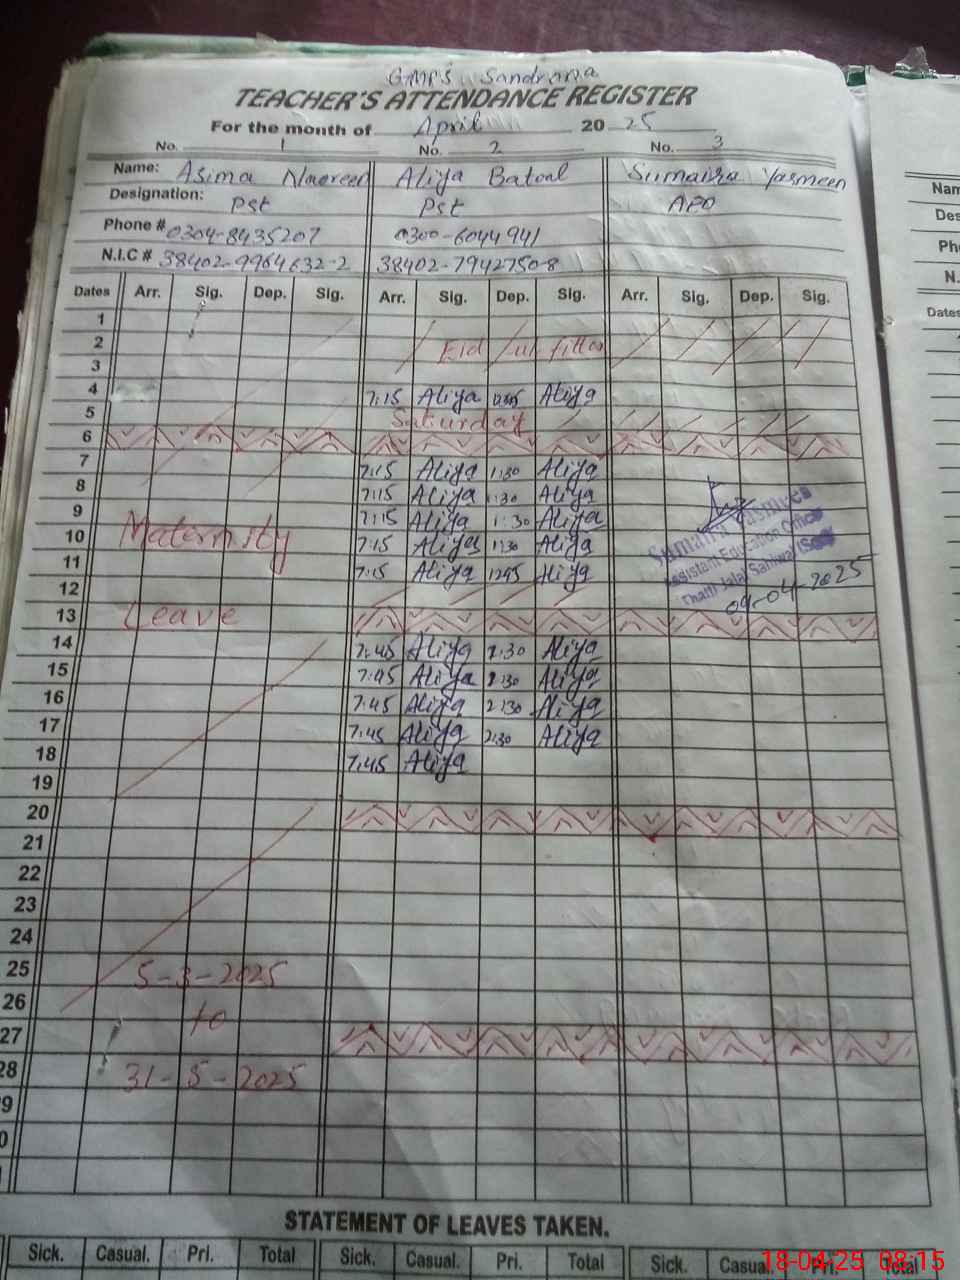 GMPS Sandrana
TEACHER'S ATTENDANCE REGISTER
For the month of April 2025
No. 1 No. 2 No. 3
Name: Asima Nasreen Aliya Batool Sumaira Yasmeen
Designation: Pst Pst AEO
Phone # 0304-8435207 0300-6044941
N.I.C # 38402-9964632-2 38402-7942750-8
Dates Arr. Sig. Dep. Sig. Arr. Sig. Dep. Sig. Arr. Sig. Dep. Sig.
1
2 Eid ul fitter
3
4 7:15 Aliya 1245 Aliya
5 Saturday
6
7 7:15 Aliya 1:30 Aliya
8 7:15 Aliya 1:30 Aliya
9 7:15 Aliya 1:30 Aliya
10 Maternity 7:15 Aliya 1:30 Aliya
11 7:15 Aliya 1245 Aliya
Sumaira Yasmeen
Assistant Education Officer
Sahiwal
09-04-2025
12
13 Leave
14 7:45 Aliya 2:30 Aliya
15 7:45 Aliya 2:30 Aliya
16 7:45 Aliya 2:30 Aliya
17 7:45 Aliya 2:30 Aliya
18 7:45 Aliya
19
20
21
22
23
24
25 5-3-2025
26 to
27
28 31-5-2025
9
0
STATEMENT OF LEAVES TAKEN.
Sick. Casual. Pri. Total Sick. Casual. Pri. Total Sick. Casual. Pri. Total
18-04-25 08:15
Nam
Des
Ph
N.
Dates